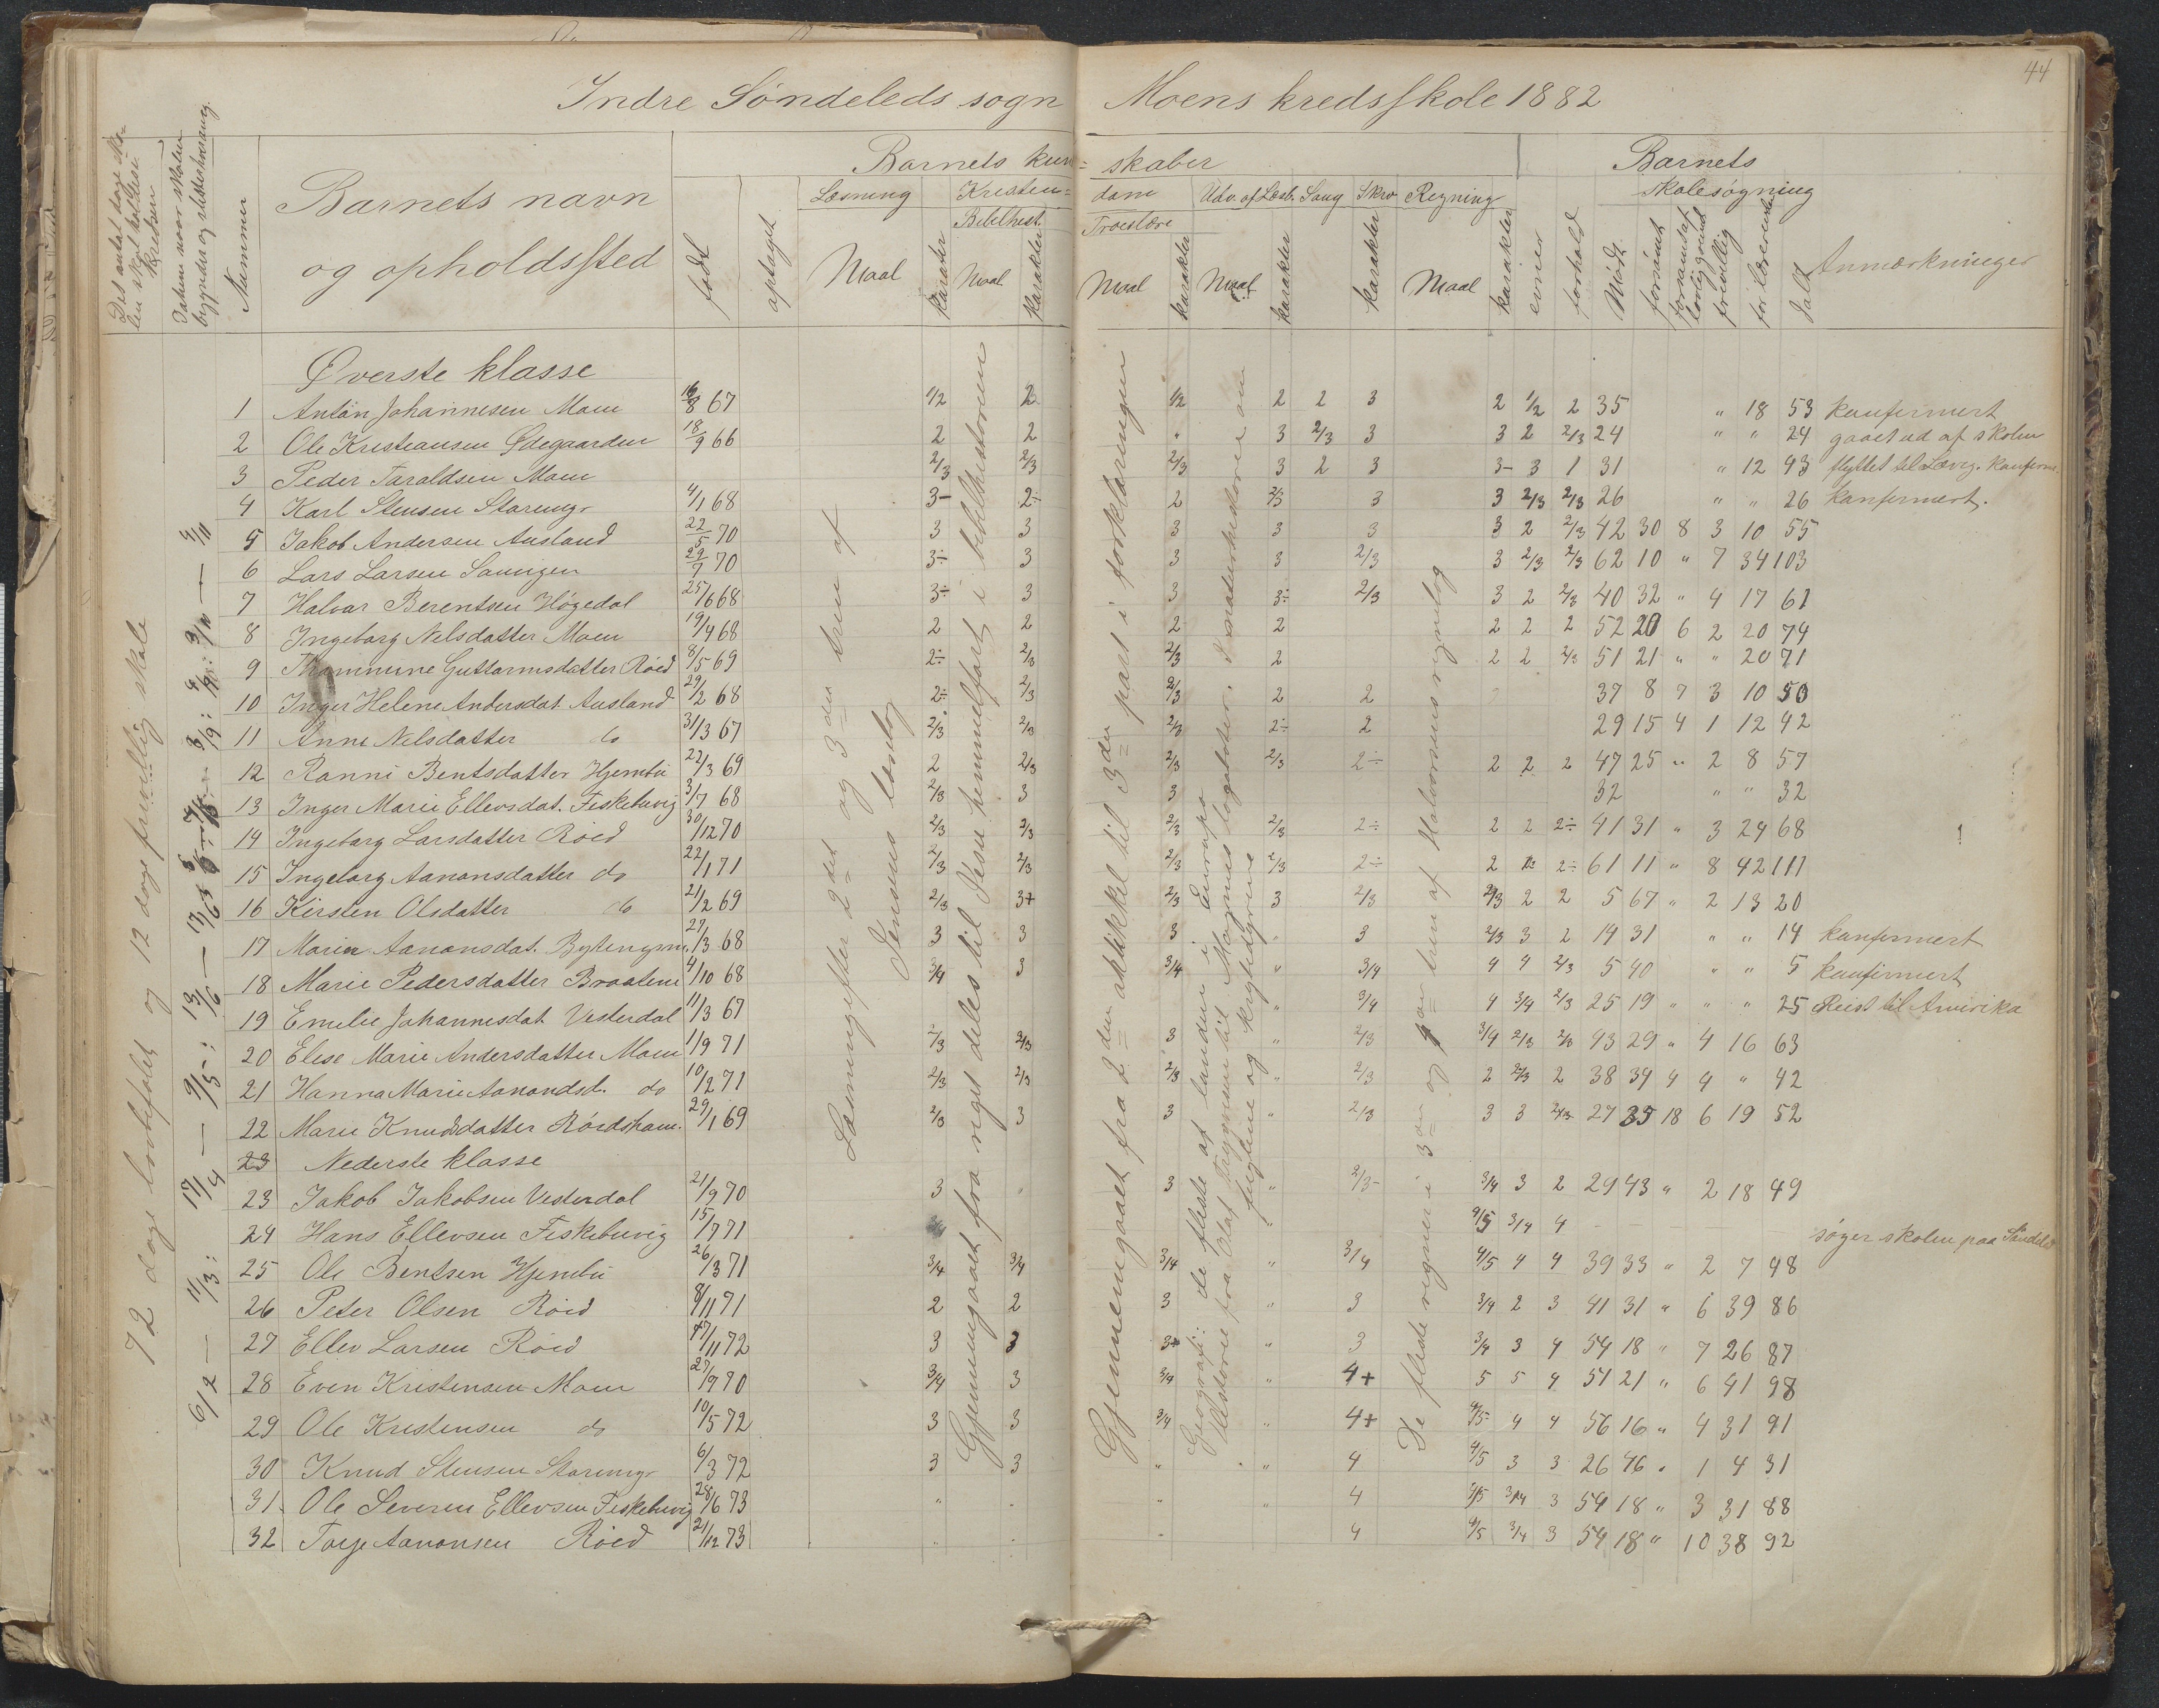 44
Indre Søndeleds sogn Moens kredsskole 1882
Barnets kun= skaber Barnets
Læsning Kristen= dom Udv. af Læsb. Sang Skrv Regning skolesøgning
Bibelhist. Troeslære
Det antal dage sko- len skal holdes i kredsen
Datum naar skolen begynder og slutter hver gang.
Nummer
Barnets navn og opholdssted
født
optaget
Maal karakter Maal karakter Maal karakter Maal karakter karakter Maal karakter evner forhold Mødt forsømt frivillig for læreren Ialt Anmærkninger
72 dage lovbefalet og 12 dage frivillig skole
Læsning efter 2det og 3die trin af Jensens læsebog
Gjennemgaaet fra riget deles til Jesu himmelfart i bibelhistorien
Gjennemgaaet fra 2den artikkel til 3die part i forklaringen
Geografi: de fleste af landene i Europa
Historie fra Olaf Trygveson til Magnus lagabøter. I naturhistorie om fuglene og krybdyrene
De fleste regner i 3die og 4de trin af Halvorsens regnebog
Øverste klasse
1 Antón Johannesen Moen 16/8 67 1/2 2 1/2 2 2 3 2 1/2 2 35 " 18 53 konfirmert
2 Ole Kristiansen Ødegaarden 18/9 66 2 2 " 3 2/3 3 3 2 2/3 24 " " 24 gaaet ud af skolen
3 Peder Taraldsen Moen 2/3 2/3 2/3 3 2 3 3- 3 1 31 " 12 43 flyttet til Laurvg. konfirm.
4 Karl Stensen Storemyr 4/1 68 3- 2÷ 2 2/3 3 3 2/3 2/3 26 " " 26 konfirmert.
5 Jakob Andersen Ausland 22/5 70 3 3 3 3 3 3 2 2/3 42 30 8 3 10 55
6 Lars Larsen Saungen 29/7 70 3÷ 3 3 3 2/3 3 2/3 2/3 62 10 " 7 34 103
7 Halvor Berentsen Høgedal 25/6 68 3÷ 3 3 3÷ 2/3 3 2 2/3 40 32 " 4 17 61
8 Ingeborg Nilsdatter Moen 19/4 68 2 2 2 2 2 2 2 52 20 6 2 20 74
9 Thommine Guttormsdatter Röed 8/5 69 2÷ 2/3 2/3 2 2 2 2/3 51 21 " " 20 71
10 Inger Helene Andersdat. Ausland 29/2 68 2÷ 2/3 2/3 2 2 37 8 7 3 10 50
11 Anne Nilsdatter do 31/3 67 2/3 2/3 2/3 2÷ 2 29 15 4 1 12 42
12 Ranni Bentsdatter Hjembu 22/3 69 2 2/3 2/3 2/3 2÷ 2 2 2 47 25 " 2 8 57
13 Inger Marie Ellevsdat. Fiskebuvig 3/7 68 2/3 3 3 32 " " 32
14 Ingeborg Larsdatter Röed 30/12 70 2/3 2/3 2/3 2/3 2÷ 2 2 2÷ 41 31 " 3 24 68
15 Ingeborg Aanonsdatter do 22/1 71 2/3 2/3 2/3 2/3 2÷ 2 2 2÷ 61 11 " 8 42 111
16 Kirsten Olsdatter do 21/2 69 2/3 3+ 2/3 3 2/3 2/3 2 2 5 67 " 2 13 20
17 Maria Aanonsdat. 27/3 68 3 3 3 " 3 2/3 3 2 14 31 " " 14 konfirmert
18 Marie Pedersdatter Braatene 4/10 68 3/4 3 3/4 " 3/4 4 4 2/3 5 40 " " 5 konfirmert
19 Emelie Johannesdat Vesterdal 11/3 67 " 3/4 4 3/4 2/3 25 19 " " " 25 Reist til Amerika
20 Elise Marie Andersdatter Moen 1/9 71 2/3 2/3 3 " 2/3 3/4 2/3 2/3 43 29 " 4 16 63
21 Hanna Marie Aanondsd. do 10/2 71 2/3 2/3 2/3 " 2/3 2 2/3 2 38 34 4 4 " 42
22 Marie Knudsdatter Rördsham. 29/1 69 2/3 3 3 " 2/3 3 3 2/3 27 35 18 6 19 52
23 Nederste klasse
23 Jakob Jakobsen Vesterdal 21/9 70 3 " 3 " 2/3- 3/4 3 2 29 43 " 2 18 49
24 Hans Ellevsen Fiskebuvig 15/7 71 3/4 4/5 3/4 4 søger skolen paa Søndeled
25 Ole Bentsen Hjembu 26/3 71 3/4 3/4 3/4 " 3/4 4/5 4 4 39 33 " 2 7 48
26 Peter Olsen Röed 8/11 71 2 2 3 " 3 3/4 2 3 41 31 " 6 39 86
27 Ellev Larsen Röed 17/11 72 3 3 3 " 3 3/4 3 4 54 18 " 7 26 87
28 Even Kristensen Moen 27/9 70 3/4 3 3/4 " 4+ 5 5 4 51 21 " 6 41 98
29 Ole Kristensen do 10/5 72 3 3 3/4 " 4+ 4/5 4 4 56 16 " 4 31 91
30 Knud Stensen Storemyr 6/3 72 3 3 " " 4 4/5 3 3 26 46 " 1 4 31
31 Ole Severin Ellevsen Fiskebuvig 28/6 73 " " " " 4 4/5 3/4 3 54 18 " 3 31 88
32 Torje Aanonsen Röed 21/12 73 " " " 4 4/5 3/4 3 54 18 " 10 38 92